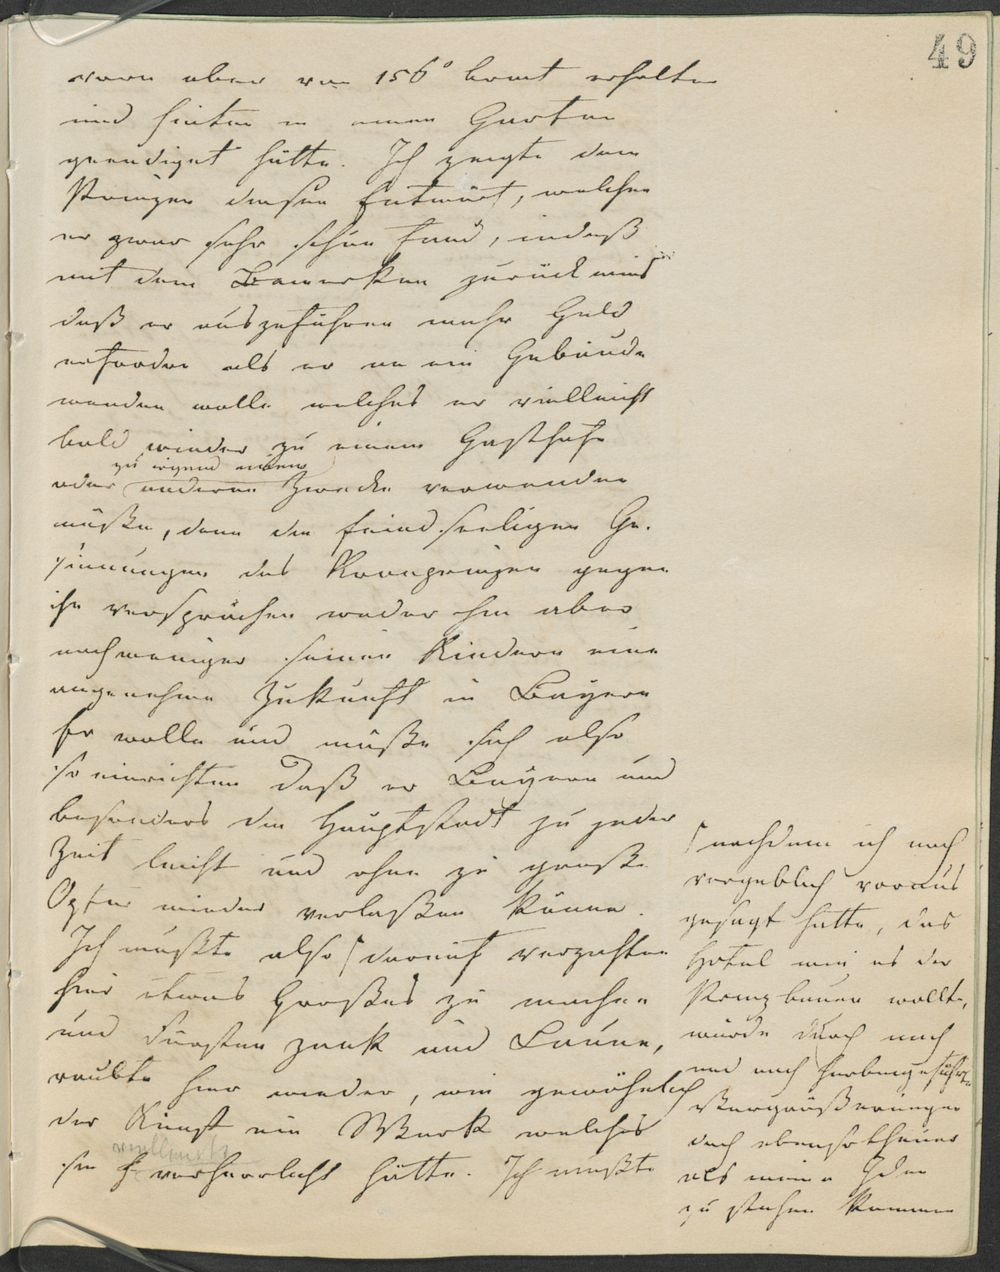 49
vorn aber von 156° breit erhalten
und hinten in einen Garten
geendiget hätte. Ich zeigte dem
Prinzen diesen Entwurf, welchen
er zwar sehr schön fand, indeß
mit dem Bemerken zurück wies
daß er auszuführen mehr Geld
erfordre als er an ein Gebäude
wenden wolle welches er vielleicht
bald wieder zu einem Gasthofe
zu irgend einem
oder anderen Zwecke verwenden
müße, denn die feindseeligen Ge-
sinnungen des Kronprinzen gegen
ihn versprächen weder ihm aber
noch weniger seinen Kindern eine
angenehme Zukunft in Bayern
Er wolle und müße sich also
so einrichten daß er Bayern und
besonders die Hauptstadt zu jeder
Zeit leicht und ohne zu große
Opfer wieder verlaßen könne.
Ich mußte also darauf verzichten
hier etwas Großes zu machen
und Fürsten zank und Laune,
raubte hier wieder, wie gewöhnlich
der Kunst ein Werk welches
vielleicht
sie verherrlicht hätte. Ich mußte
nachdem ich noch
vergeblich voraus
gesagt hatte, das
Hotel wie es der
Prinz bauen wollte,
würde durch nach
und nach herbeigeführte
Vergrößerungen
doch ebenso theuer
als meine Idee
zu stehen kommen